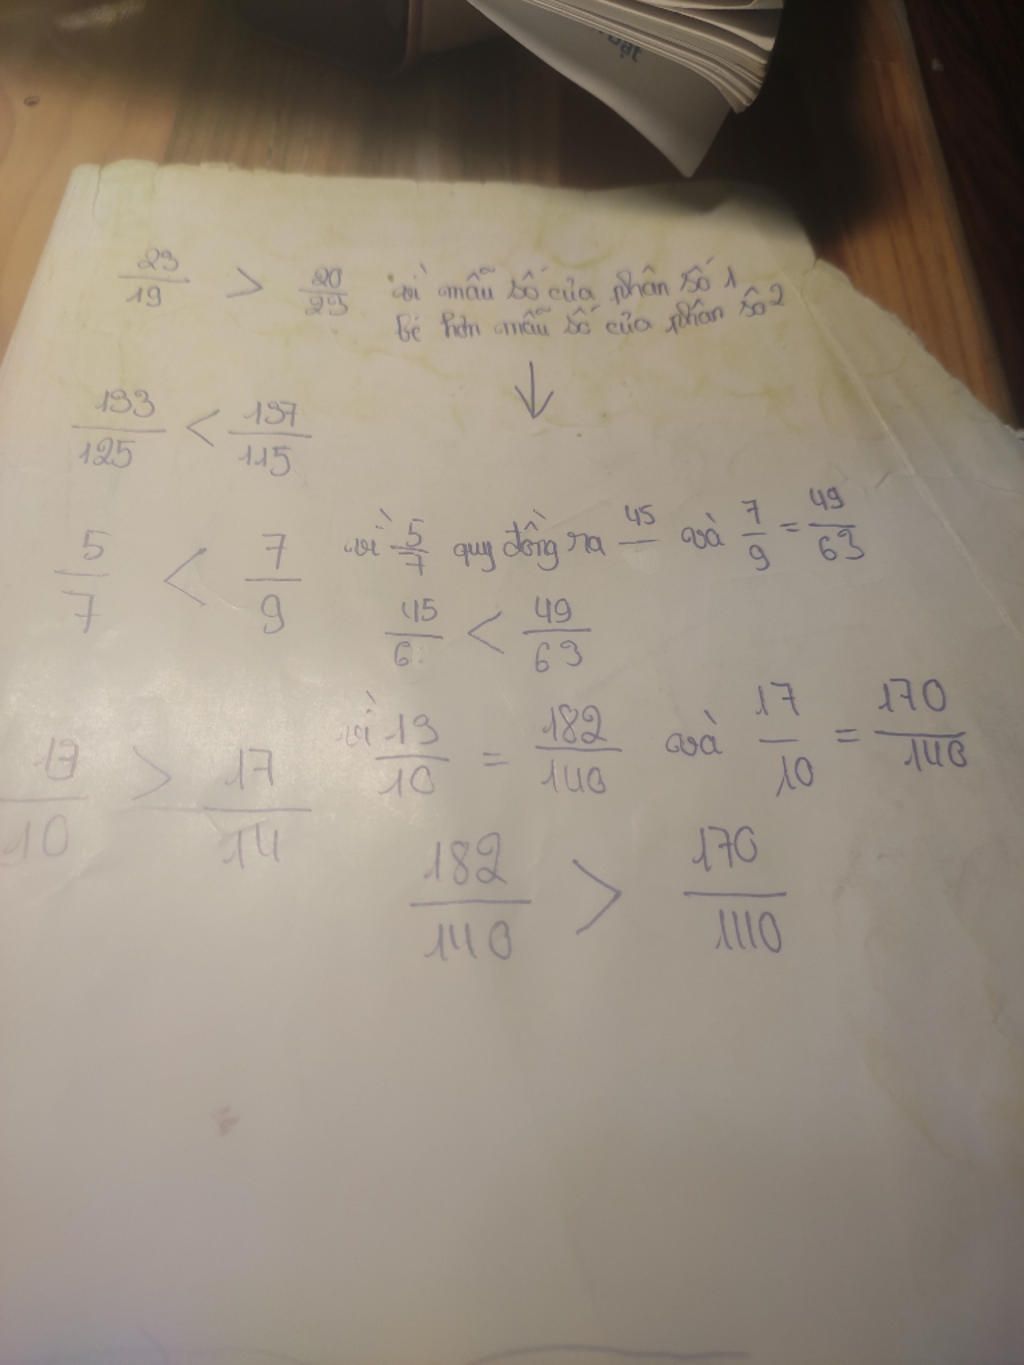 23/19 > 20/25 vì mẫu số của phân số 1
bé hơn mẫu số của phân số 2
↓
133/125 < 137/115
5/7 < 7/9 vì 5/7 quy đồng ra 45/ và 7/9 = 49/63
45/6 < 49/63
13/10 > 17/14 vì 13/10 = 182/140 và 17/10 = 170/140
182/140 > 170/140